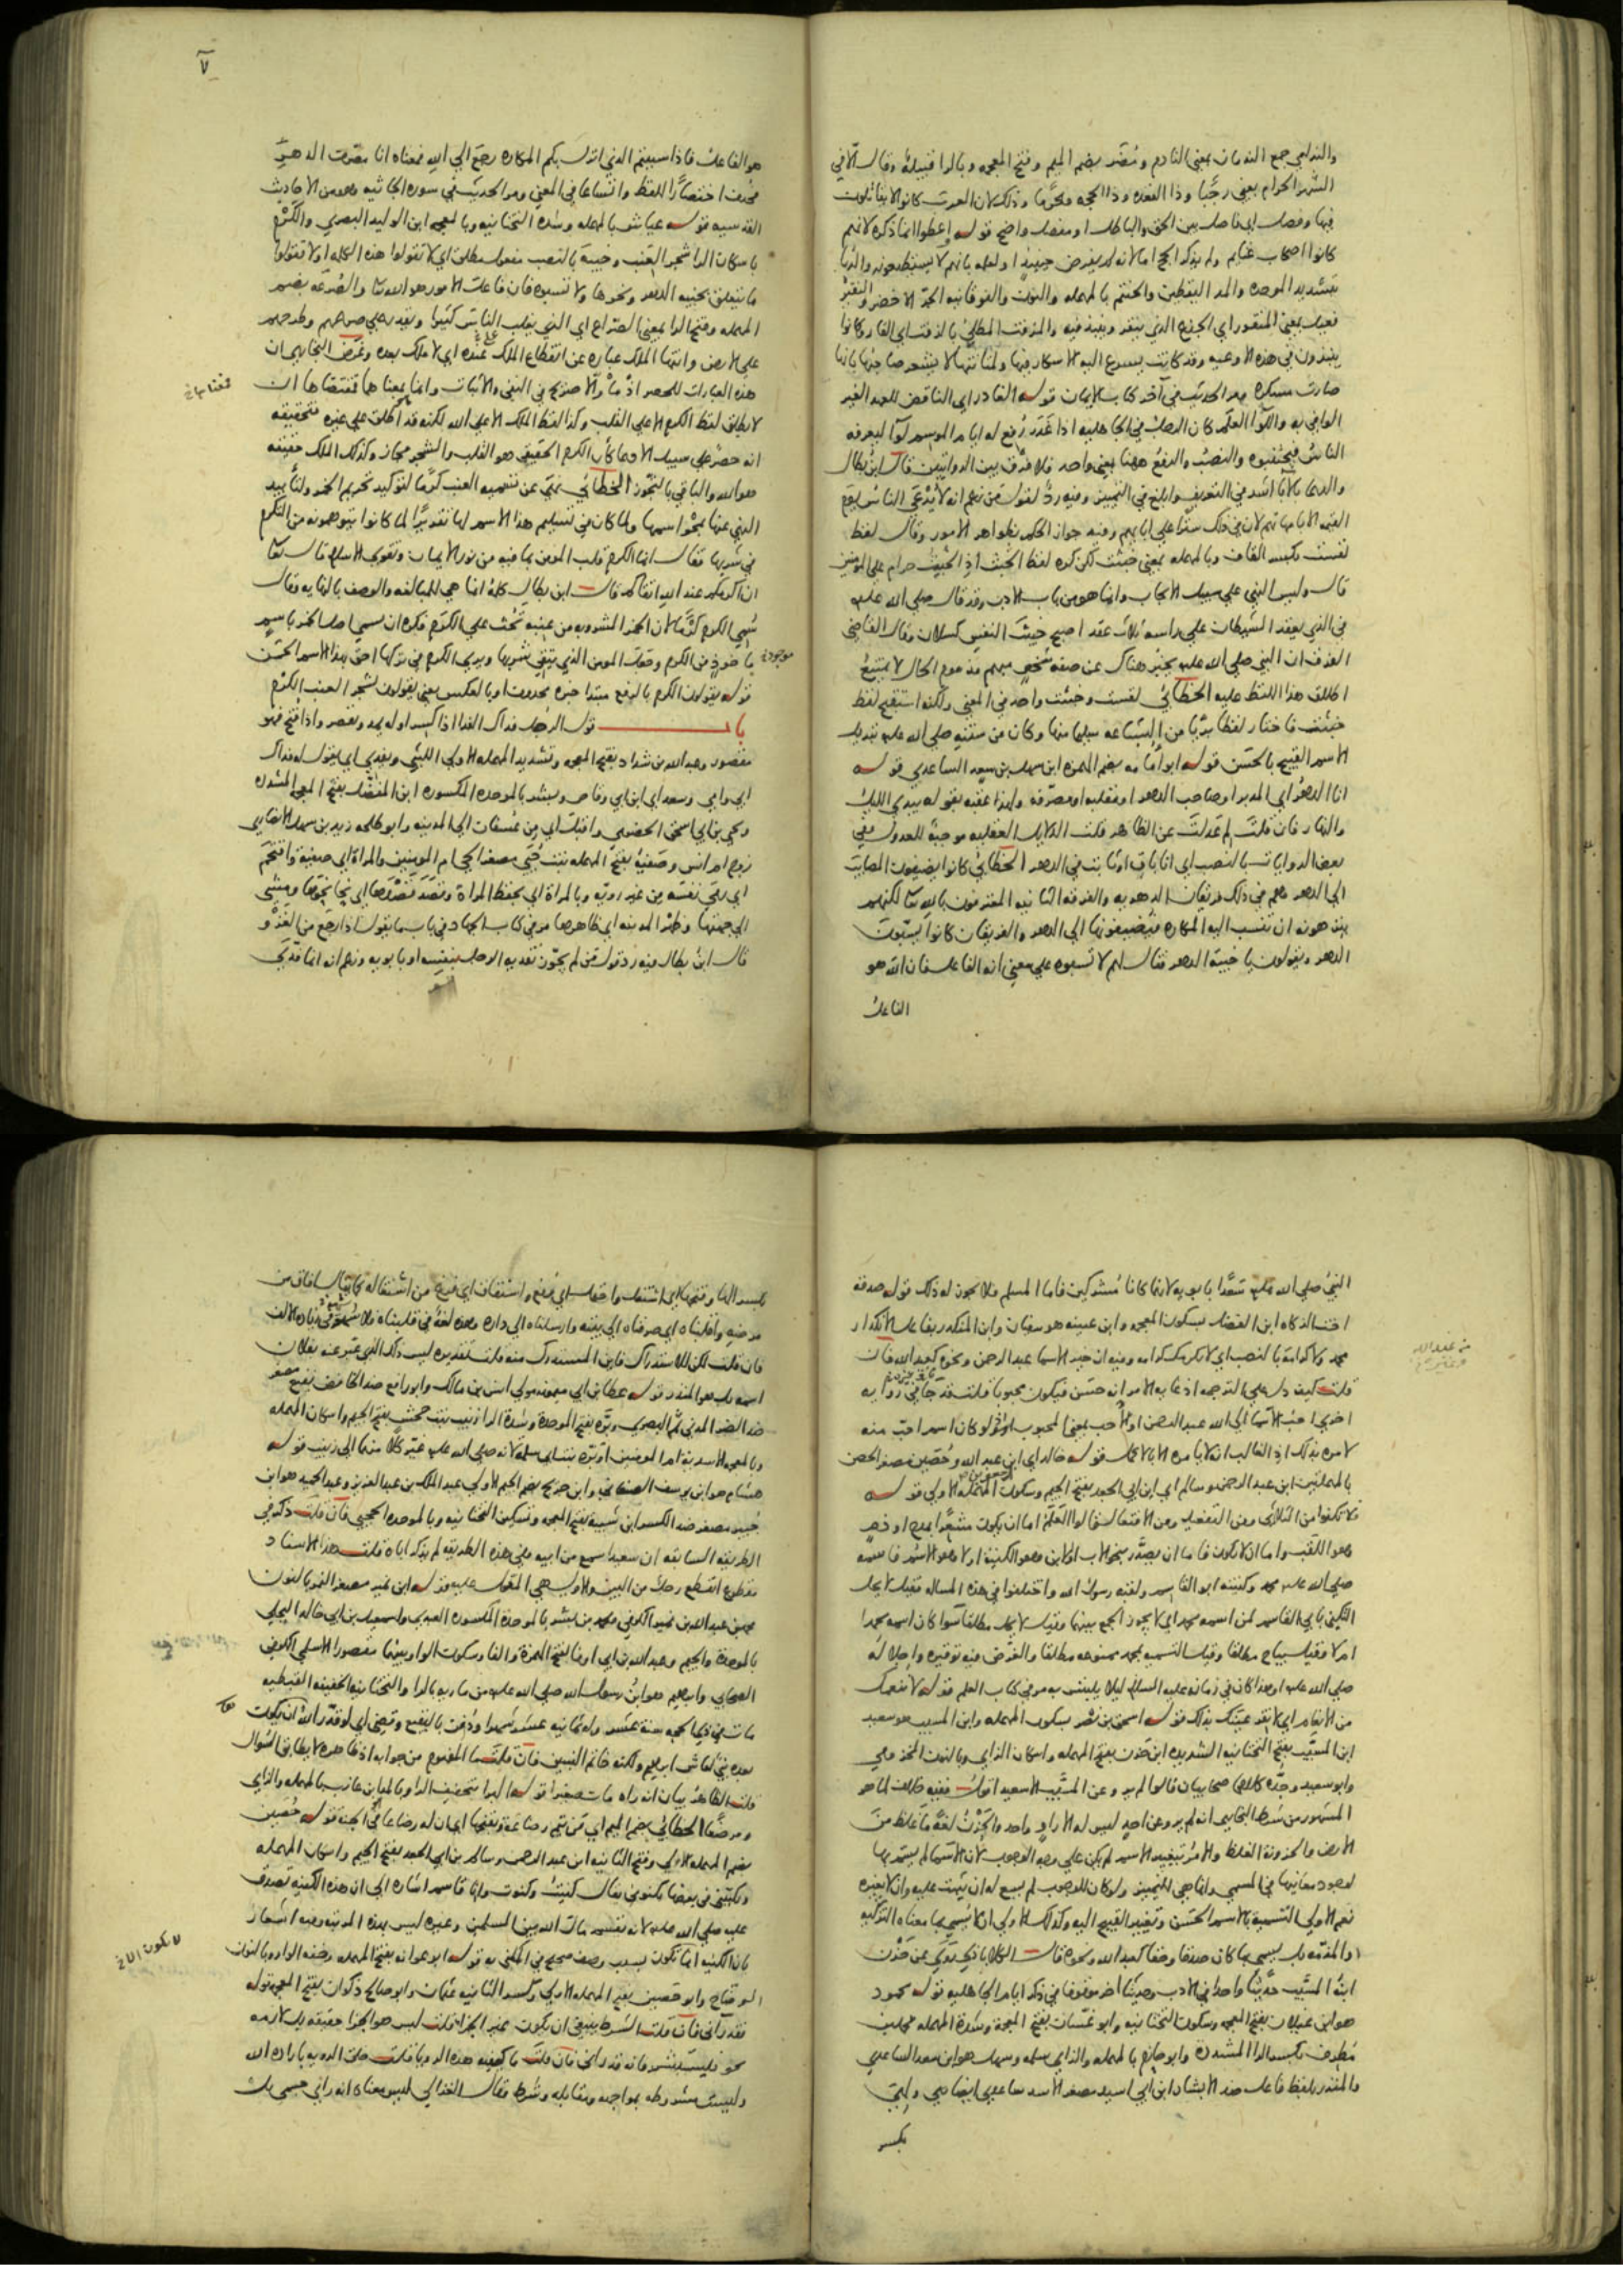 والندامى جمع الندمان بمعنى النادم ومُضَر بضم الميم وفتح المعجمه وبالرا قبيلة وقال الا في
الشهر الحرام يعني رجبا وذا القعده وذا الحجه ومحرما وذلك لان العرب كانوا لا يقاتلون
فيها وفصل اي فاصل بين الحق والباطل او مفصل واضح قوله واعطوا انما ذكره لانهم
كانوا اصحاب غنايم ولم يذكر الحج اما لانه لم يفرض حينيذ او لعلمه بانهم لا يستطيعونه والدبا
بتشديد الموحده والمد اليقطين والحنتم بالمهمله والنون والفوقانيه الجر الاخضر والنقير
فعيل بمعنى المنقور اي الجذع الذي ينقر وينبذ فيه والمزفت المطلي بالزفت اي القار وكانوا
ينبذون في هذه الاوعيه وقد كانت يسرع اليه الاسكار فيها
صارت مسكره مر الحديث في آخر كتاب الايمان قوله الغادر اي الناقض للعهد الغير
الوافي به واللوا العلم كان الرجل في الجاهليه اذا غدر رفع له ايام الموسم لوآ ليعرفه
الناس فيجتنبوه والنصب والرفع ههنا بمعنى واحد فلا فرق بين الروايتين قال ابن بطال
والدعا بالابا اشد في التعريف وابلغ في التمييز وفيه رد لقول من زعم انه لا يدعى الناس يوم
القيمه الا بامهاتهم لان في ذلك سترا على ابايهم وفيه جواز الحكم بظواهر الامور وقال لفظ
لقست بكسر القاف وبالمهمله بمعنى خبثت لكن كره لفظ الخبث اذ الخبيث حرام على المومنين
قال وليس النهي على سبيل الايجاب وانما هو من باب الادب وقد قال صلى الله عليه
في الذي يعقد الشيطان على راسه ثلاث عقد اصبح خبيث النفس كسلان وقال القاضي
الفرق ان النبي صلى الله عليه يخبر هناك عن صفة شخص مبهم مذموم الحال لا يمتنع
اطلاق هذا اللفظ عليه الخطابي لقست وخبثت واحد في المعنى ولكنه استقبح لفظ
خبثت فاختار لفظا بريا من البشاعه سليما منها وكان من سنته صلى الله عليه تبديل
الاسم القبيح بالحسن قوله ابو امامه بضم الهمزه ابن سهل بن سعد الساعدي قوله
انا الدهر اي المدبر او صاحب الدهر او مقلبه او مصرفه ولهذا عقبه بقوله بيدي الليل
والنهار فان قلت لم عدلت عن الظاهر قلت الدلايل العقليه موجبة للعدول وفي
بعض الروايات بالنصب اي انا باق او ثابت في الدهر الخطابي كانوا يضيفون المصايب
الى الدهر وهم في ذلك فريقان الدهريه والفرقه الثانيه المعترفون بالله تعالى لكنهم
ينزهونه ان تنسب اليه المكاره فيضيفونها الى الدهر والفريقان كانوا يسبون
الدهر ويقولون يا خيبة الدهر فقال لهم لا تسبوه على معنى انه الفاعل فان الله هو
الفاعل
٧
هو الفاعل فاذا سببتم الذي انزل بكم المكاره رجع الى الله فمعناه انا مصرف الدهر
فحذف اختصارا للفظ واتساعا في المعنى ومر الحديث في سوره الجاثيه وهو من الاحاديث
القدسيه قوله عياش بالمهمله وشده التحتانيه وبالمعجمه ابن الوليد البصري والكرم
باسكان الرا شجر العنب وخيبة بالنصب مفعول مطلق اي لا تقولوا هذه الكلمه او لا تقولوا
ما يتعلق بخيبه الدهر ونحوها ولا تسبوه فان فاعل الامور هو الله تعالى والصرعه بضم
المهمله وفتح الرا بمعنى الصراع اي الذي يغلب الناس كثيرا ويقدر على صرعهم وطرحهم
على الارض وانتهاء الملك عباره عن انقطاع الملك عنده اي لا ملك بعده وغرض البخاري ان
هذه العبارات للحصر اذ ما والا صريح في النفي والاثبات وانما بمعناهما فمقتضاها ان
لا يطلق لفظ الكرم الا على القلب وكذا لفظ الملك الا على الله لكنه قد اطلق على غيره فتحقيقه
انه حصر على سبيل الادعا كأن الكرم الحقيقي هو القلب والشجر مجاز وكذلك الملك حقيقه
هو الله والباقي بالتجوز الخطابي نهى عن تسميه العنب كرما لتوكيد تحريم الخمر ولتأبيد
النهي عنها بمحو اسمها ولما كان في تسليم هذا الاسم لها تقديرا لما كانوا يتوهمونه من التكرم
في شربها فقال انما الكرم قلب المومن بما فيه من نور الايمان وتقوى الاسلام قال تعالى
ان اكرمكم عند الله اتقاكم قال ابن بطال كلمة انما هي للمبالغه والوصف بالغايه وقال
سمي الكرم كرما لان الخمر المشروبه من عنبه تحث على الكرم فكره ان يسمى اصل الخمر باسم
ماخوذ من الكرم وجعل المومن الذي يتقي شربها ويرى الكرم في تركها احق بهذا الاسم الحسن
قوله يقولون الكرم بالرفع مبتدا خبره محذوف او بالعكس يعني يقولون لشجر العنب الكرم
باب قول الرجل فداك الفدا اذا كسر اوله يمد ويقصر واذا فتح فهو
مقصور وعبد الله بن شداد بفتح المعجمه وتشديد المهمله الاولى الليثي ويفدي اي يقول له فداك
ابي وامي وسعد اي ابن ابي وقاص وبشر بالموحده المكسوره ابن المفضل بفتح المعجمه المشدده
ويحيى بن ابي اسحق الحضرمي واقبل اي من عسفان الى المدينه وابو طلحه زيد بن سهل الانصاري
زوج ام انس وصفيه بفتح المهمله بنت حيي مصغر الحي ام المومنين والمراة اي صفية واقتحم
اي رمى نفسه من غير رويه وبالمراة اي بحفظ المراة وقصد قصدها اي نحا نحوها ومشى
الى جهتها وظهر المدينه اي ظاهرها مر في كتاب الجهاد في باب ما يقول اذا رجع من الغزو
قال ابن بطال فيه رد قول من لم يجوز تفديه الرجل بنفسه او بابويه وزعم انه انما فدى
النبي صلى الله عليه سعدا بابويه لانهما كانا مشركين فاما المسلم فلا يجوز له ذلك قوله صدقه
اخت الزكاه ابن الفضل بسكون المعجمه وابن عيينه هو سفيان وابن المنكدر بفاعل الانكدار
محمد ولا كرامة بالنصب اي لا نكرمك كرامه وفيه ان خير الاسما عبد الرحمن ونحوه كعبد الله فان
قلت كيف دل على الترجمه اذ غايه الامر انه حسن فيكون محبوبا قلت قد جا في روايه
اخرى احب الاسما الى الله عبد الرحمن او الاحب بمعنى المحبوب او انه لو كان اسم احب منه
لامره بذلك اذ الغالب انه لا يامره الا بالاكمل قوله خالد اي ابن عبد الله وحصين مصغر الحصن
بالمهملتين ابن عبد الرحمن وسالم اي ابن ابي الجعد بفتح الجيم وسكون المهمله الاولى قوله
لا تكنوا من الثلاثي ومن التفعيل ومن الافتعال قالوا العلم اما ان يكون مشعرا بمدح او ذم
وهو اللقب واما ان لا يكون فاما ان يصدر بنحو الاب او الابن وهو الكنية او لا وهو الاسم فاسمه
صلى الله عليه محمد وكنيته ابو القاسم ولقبه رسول الله واختلفوا في هذه المساله فقيل لا يحل
التكني بابي القاسم لمن اسمه محمد اي لا يجوز الجمع بينهما وقيل لا يحل مطلقا سوا كان اسمه محمدا
ام لا وقيل يباح مطلقا وقيل التسميه بمحمد ممنوعه مطلقا والغرض فيه توقيره واجلاله
صلى الله عليه او هذا كان في زمانه عليه السلام ليلا يلتبس به مر في كتاب العلم قوله لا ننعمك
من الانعام اي لا نقر عينك بذلك قوله اسحق بن نصر بسكون المهمله وابن المسيب هو سعيد
ابن المسيب بفتح التحتانيه الشديده ابن حزن بفتح المهمله واسكان الزاي وبالنون المخزومي
وابو سعيد وجده كلاهما صحابيان قالوا لم يرو عن المسيب الا سعيد اقول ففيه خلاف لما هو
المشهور من شرط البخاري انه لم يرو عن احد ليس له الا راو واحد والحزن لغة ما غلظ من
الارض والحزونة الغلظ والامر بتغيير الاسم لم يكن على وجه الوجوب لان الاسما لم يسم بها
لوجود معانيها في المسمى وانما هي للتمييز ولو كان للوجوب لم يسع له ان يثبت عليه وان لا يغيره
نعم الاولى التسمية بالاسم الحسن وتغيير القبيح اليه وكذلك الاولى ان لا يسمى بما معناه التزكيه
او المذمه بل يسمى بما كان صدقا وحقا كعبد الله ونحوه قال الكلاباذي روى عن حزن
ابنه المسيب حديثا واحدا في الادب وحديثا اخر موقوفا في ذكر ايام الجاهليه قوله محمود
هو ابن غيلان بفتح المعجمه وسكون التحتانيه وابو غسان بفتح المعجمة وشدة المهمله محمد بن
مطرف بكسر الرا المشدده وابو حازم بالمهمله والزاي سلمه وسهل هو ابن سعد الساعدي
والمنذر بلفظ فاعل ضد الابشار ابن ابي اسيد مصغر الاسد ساعدي ايضا صحابي ولهي
بكسر
بكسر الها وفتحها اي اشتغل واحتمل اي رفع واستفاق اي فرغ من اشتغاله كما يقال افاق من
مرضه واقلبناه اي صرفناه الى بيته وارسلناه الى داره وهذه لغة في قلبناه فلا سهو في زياده الالف
فان قلت لكن للاستدراك فاين المستدرك منه قلت تقديره ليس ذلك الذي عبر عنه بفلان
اسمه بل هو المنذر قوله عطا بن ابي ميمونه مولى انس بن مالك وابو رافع ضد الخافض نفيع مصغر
ضد الضر المدني ثم البصري وبره بفتح الموحدة وشدة الرا زينب بنت جحش بفتح الجيم واسكان المهمله
وبالمعجمه الاسدية ام المومنين او بره بنت ابي سلمة لانه صلى الله عليه غير كلا منهما الى زينب قوله
هشام هو ابن يوسف الصنعاني وابن جريج بضم الجيم الاولى عبد الملك بن عبد العزيز وعبد الحميد هو ابن
جبير مصغر ضد الكسر ابن شيبة بفتح المعجمه وتسكين التحتانيه وبالموحده الحجبي فان قلت ذكر في
الطريقه السابقه ان سعيدا سمع من ابيه وفي هذه الطريقه لم يذكر اباه قلت هذا الاسناد
مقطوع انقطع رجل من البين والاول هي المعول عليه قوله ابن نمير مصغر النمر بالنون
محمد بن عبد الله بن نمير الكوفي ومحمد بن بشر بالموحدة المكسوره العبدي واسمعيل بن ابي خالد البجلي
بالموحدة والجيم وعبد الله بن ابي اوفى بفتح الهمزة والفا وسكون الواو بينهما مقصورا الاسلمي الكوفي
الصحابي وابراهيم هو ابن رسول الله صلى الله عليه من ماريه بالرا والتحتانيه الخفيفه القبطيه
مات في ذي الحجه سنه عشر وله ثمانيه عشر شهرا ودفن بالبقيع وقضي اي لو قدر الله ان يكون
بعده نبي لعاش ابراهيم ولكنه خاتم النبيين فان قلت ما المفهوم من جوابه اذ ظاهره لا يطابق السوال
قلت الظاهر بيان انه راه مات صغيرا قوله البرا بتخفيف الرا وبالمد ابن عازب بالمهمله والزاي
ومرضعا الخطابي بضم الميم اي من يتم رضاعه وبفتحها اي ان له رضاعا في الجنة قوله حصين
بضم المهمله الاولى وفتح الثانيه ابن عبد الرحمن وسالم بن ابي الجعد بفتح الجيم واسكان المهمله
وبكنيتي في بعضها بكنوتي يقال كنيت وكنوت وانا قاسم اشاره الى ان هذه الكنيه تصدق
عليه صلى الله عليه لانه يقسم مال الله بين المسلمين وغيره ليس بهذه المرتبه وفيه اشعار
بان الكنيه انما تكون بسبب وصف صحيح في المكنى به قوله ابو عوانه بفتح المهمله وخفه الواو وبالنون
الوضاح وابو حصين بفتح المهمله الاولى وكسر الثانيه عثمان وابو صالح ذكوان بفتح المعجمه قوله
فقد رآني فان قلت الشرط ينبغي ان يكون غير الجزا قلت ليس هو الجزا حقيقه بل لازمه
نحو فليستبشر فانه قد راني فان قلت ما كيفيه هذه الرويا قلت خلق الرويه باراده الله
وليست مشروطه بمواجهه ومقابله وشرط وقال الغزالي ليس معناه انه راى جسمي بل